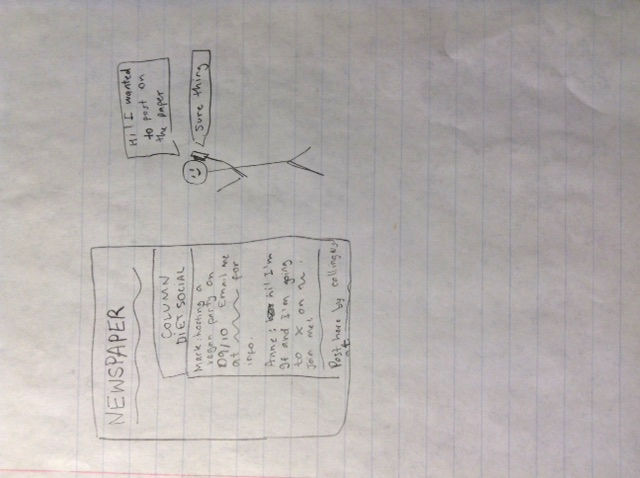 NEWSPAPER
COLUMN
DIET SOCIAL
Mark: hosting a
vegan party on
09/10 Email me
at for
info.
Anne: hi! I'm
gf and I'm going
to X on
Join me!
Post here by calling us
at
Hi! I wanted
to post on
the paper
Sure thing